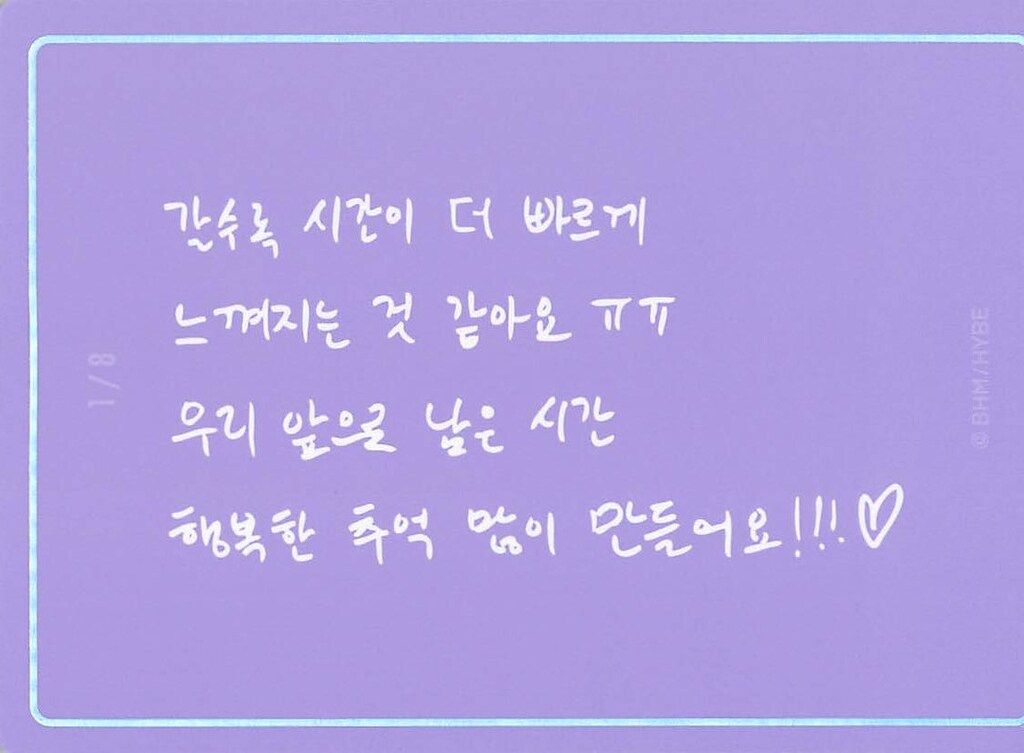 갈수록 시간이 더 빠르게
느껴지는 것 같아요 ㅠㅠ
우리 앞으로 남은 시간
행복한 추억 많이 만들어요!!!♡
1/8
© BHM/HYBE